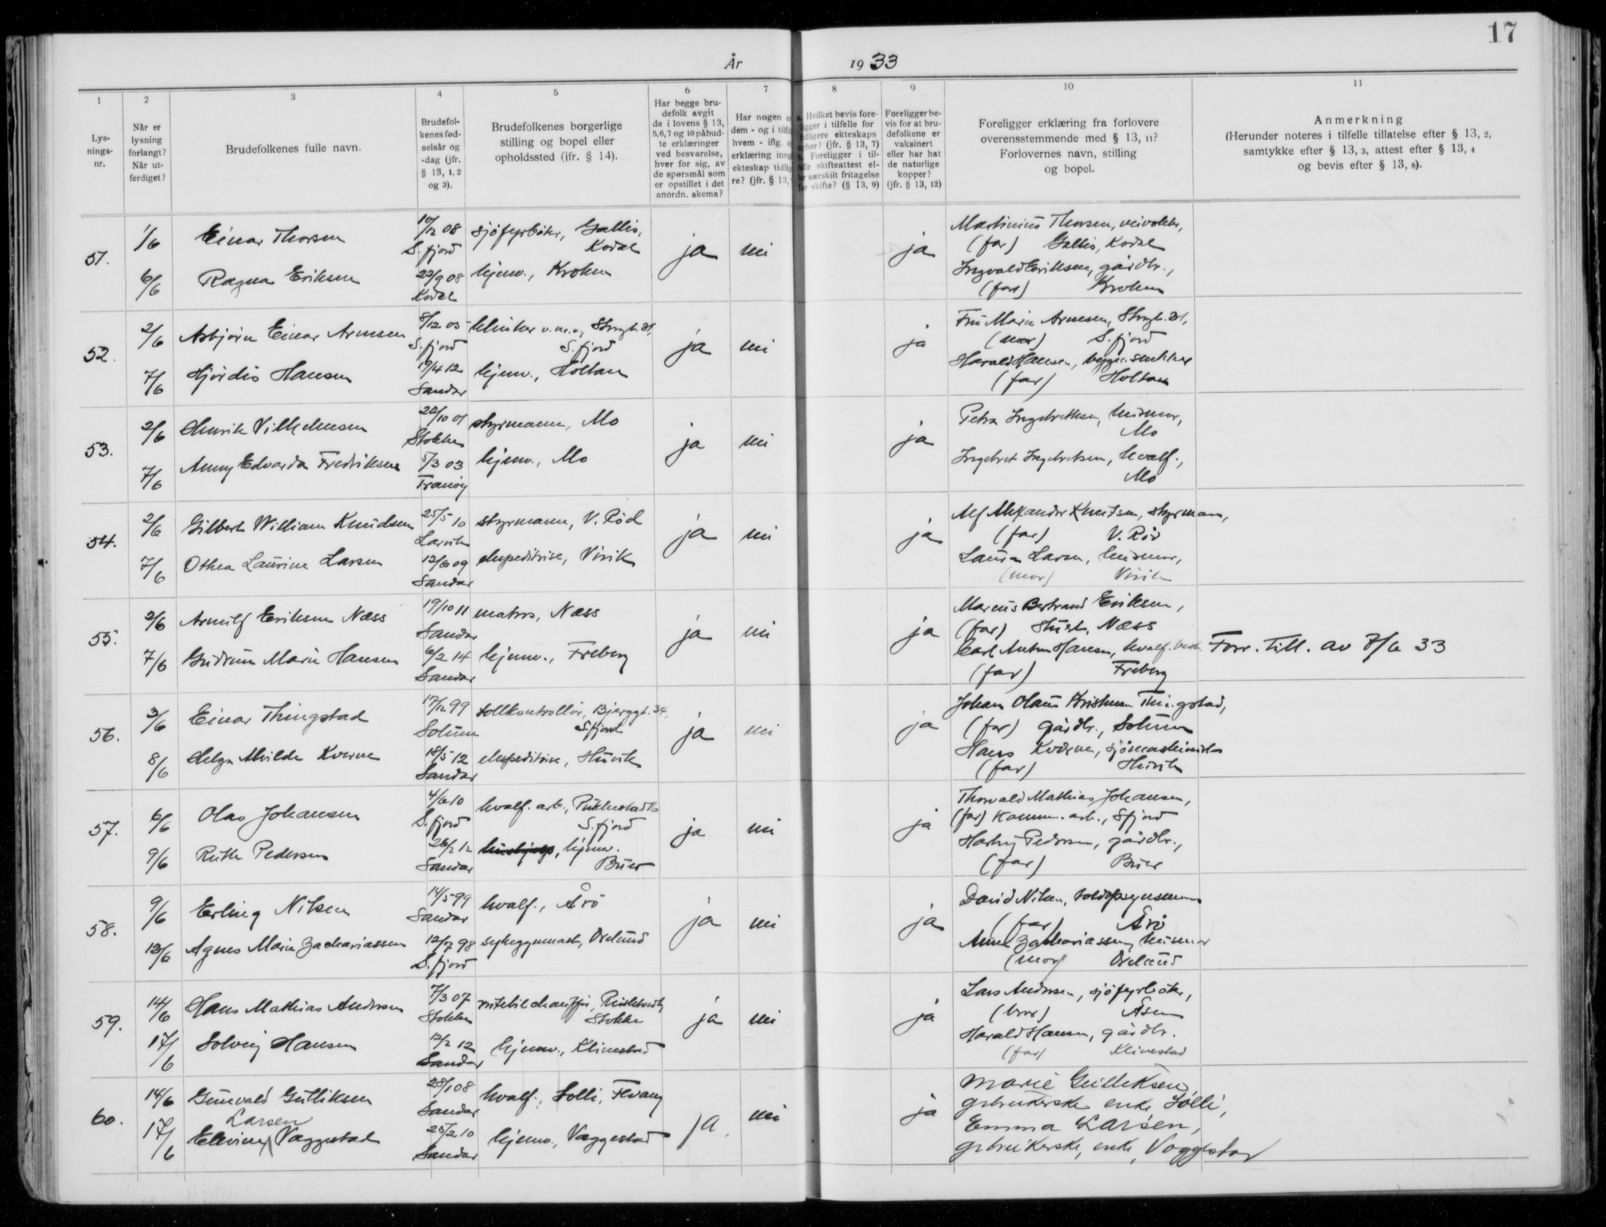 17
År 1933
1 2 3 4 5 6 7 8 9 10 11
Lysnings-nr.
Når er lysning forlangt? Når utferdiget?
Brudefolkenes fulle navn.
Brudefolkenes fødselsår og -dag (jfr. § 13, 1, 2 og 3).
Brudefolkenes borgerlige stilling og bopel eller opholdssted (ifr. § 14).
Har begge brudefolk avgit de i lovens § 13, 5, 6, 7 og 10 påbudte erklæringer ved besvarelse, hver for sig, av de spørsmål som er opstillet i det anordn. skema?
Har nogen
dem - og i
hvem - iflg.
erklæring
ekteskap
re? (jfr. § 13,
Hvilket bevis
i tilfelle for
ekteskaps
(jfr. § 13, 7)
Foreligger i
skifteattest
særskilt fritagelse
skifte? (§ 13, 9)
Foreligger bevis for at brudefolkene er vaksinert eller har hat de naturlige kopper? (jfr. § 13, 12)
Foreligger erklæring fra forlovere overensstemmende med § 13, 11? Forlovernes navn, stilling og bopel.
Anmerkning
(Herunder noteres i tilfelle tillatelse efter § 13, 2, samtykke efter § 13, 3, attest efter § 13, 4 og bevis efter § 13, 8).
51. 1/6 Einar Thorsen 08 S.fjord sjøfyrbøter, Gallis, Kodal ja nei ja Martinius Thorsen, veivokter,
(far) Gallis, Kodal
6/6 Ragna Eriksen 22/9 08 Kodal hjemv., Kroken Ingvald Eriksen, gårdbr.,
(far) Kroken
52. 2/6 Asbjørn Einar Arnesen 8/12 05 S.fjord S.fjord ja nei ja Fru Marie Arnesen,
(mor) S.fjord
7/6 Hjørdis Hansen 12 Sandar hjemv., Holtan Harald Hansen,
(far) Holtan
53. 2/6 Henrik Vilhelmsen 22/10 01 Stokke styrmann, Mo ja nei ja Petra Ingebretsen, husmor,
Mo
7/6 Anny Edvarda Fredriksen 03 Tranøy hjemv., Mo Ingebret Ingebretsen, hvalf.,
Mo
54. 2/6 Gilbert William Knudsen 25/5 10 Larvik styrmann, V. Rød ja nei ja Alf Alexander Knutsen, styrmann,
(far) V. Rød
7/6 Othea Laurine Larsen 09 Sandar ekspeditrise, Virik Laura Larsen, husmor,
(mor) Virik
55. 2/6 Arnulf Eriksen Næss 19/10 11 Sandar matros, Næss ja nei ja Marcus Bertrand Eriksen,
(far) Næss
7/6 Gudrun Marie Hansen 6/2 14 Sandar hjemv., Freberg Carl Anton Hansen, hvalf.best. Forr. till. av 7/6 33
(far) Freberg
56. 3/6 Einar Thingstad 99 Solum tollkontrollør, Bjerggt. 34, S.fjord ja nei ja Johan Olaus Kristensen Thingstad,
(far) gårdbr., Solum
8/6 Helga Alvilde Kverne 18/5 12 Sandar ekspeditrise, Husvik Hans Kværne, sjømaskinist
(far) Husvik
57. 6/6 Olav Johansen 10 S.fjord hvalf. arb., S.fjord ja nei ja Thorvald Mathias Johansen,
(far) Komm. arb., Sfjord
9/6 Ruth Pedersen 26/2 12 Sandar hjemv. Buer Pedersen, gårdbr.,
(far) Buer
58. 9/6 Erling Nilsen 14/5 99 Sandar hvalf., Årø ja nei ja David Nilsen,
(far) Årø
13/6 Agnes Marie Zachariassen 12/7 98 S.fjord sykegymnast, Ørelund Anna Zachariassen, husmor
(mor) Ørelund
59. 14/6 Hans Mathias Andersen 7/3 07 Stokke rutebilchauffør, Stokke ja nei ja Lars Andersen, sjøfyrbøter,
(bror) Åsen
17/6 Solveig Hansen 12/2 12 Sandar hjemv., Klinestad Harald Hansen, gårdbr.
(far) Klinestad
60. 14/6 Gunvald Gulliksen 28/1 08 Sandar hvalf., Solli, Kvang ja nei ja Marie Gulliksen,
grbrukerske enke Solli,
17/6 Larsen Vaggestad 25/2 10 Sandar hjemv., Vaggestad Emma Larsen,
grbrukerske, enke, Vaggestad